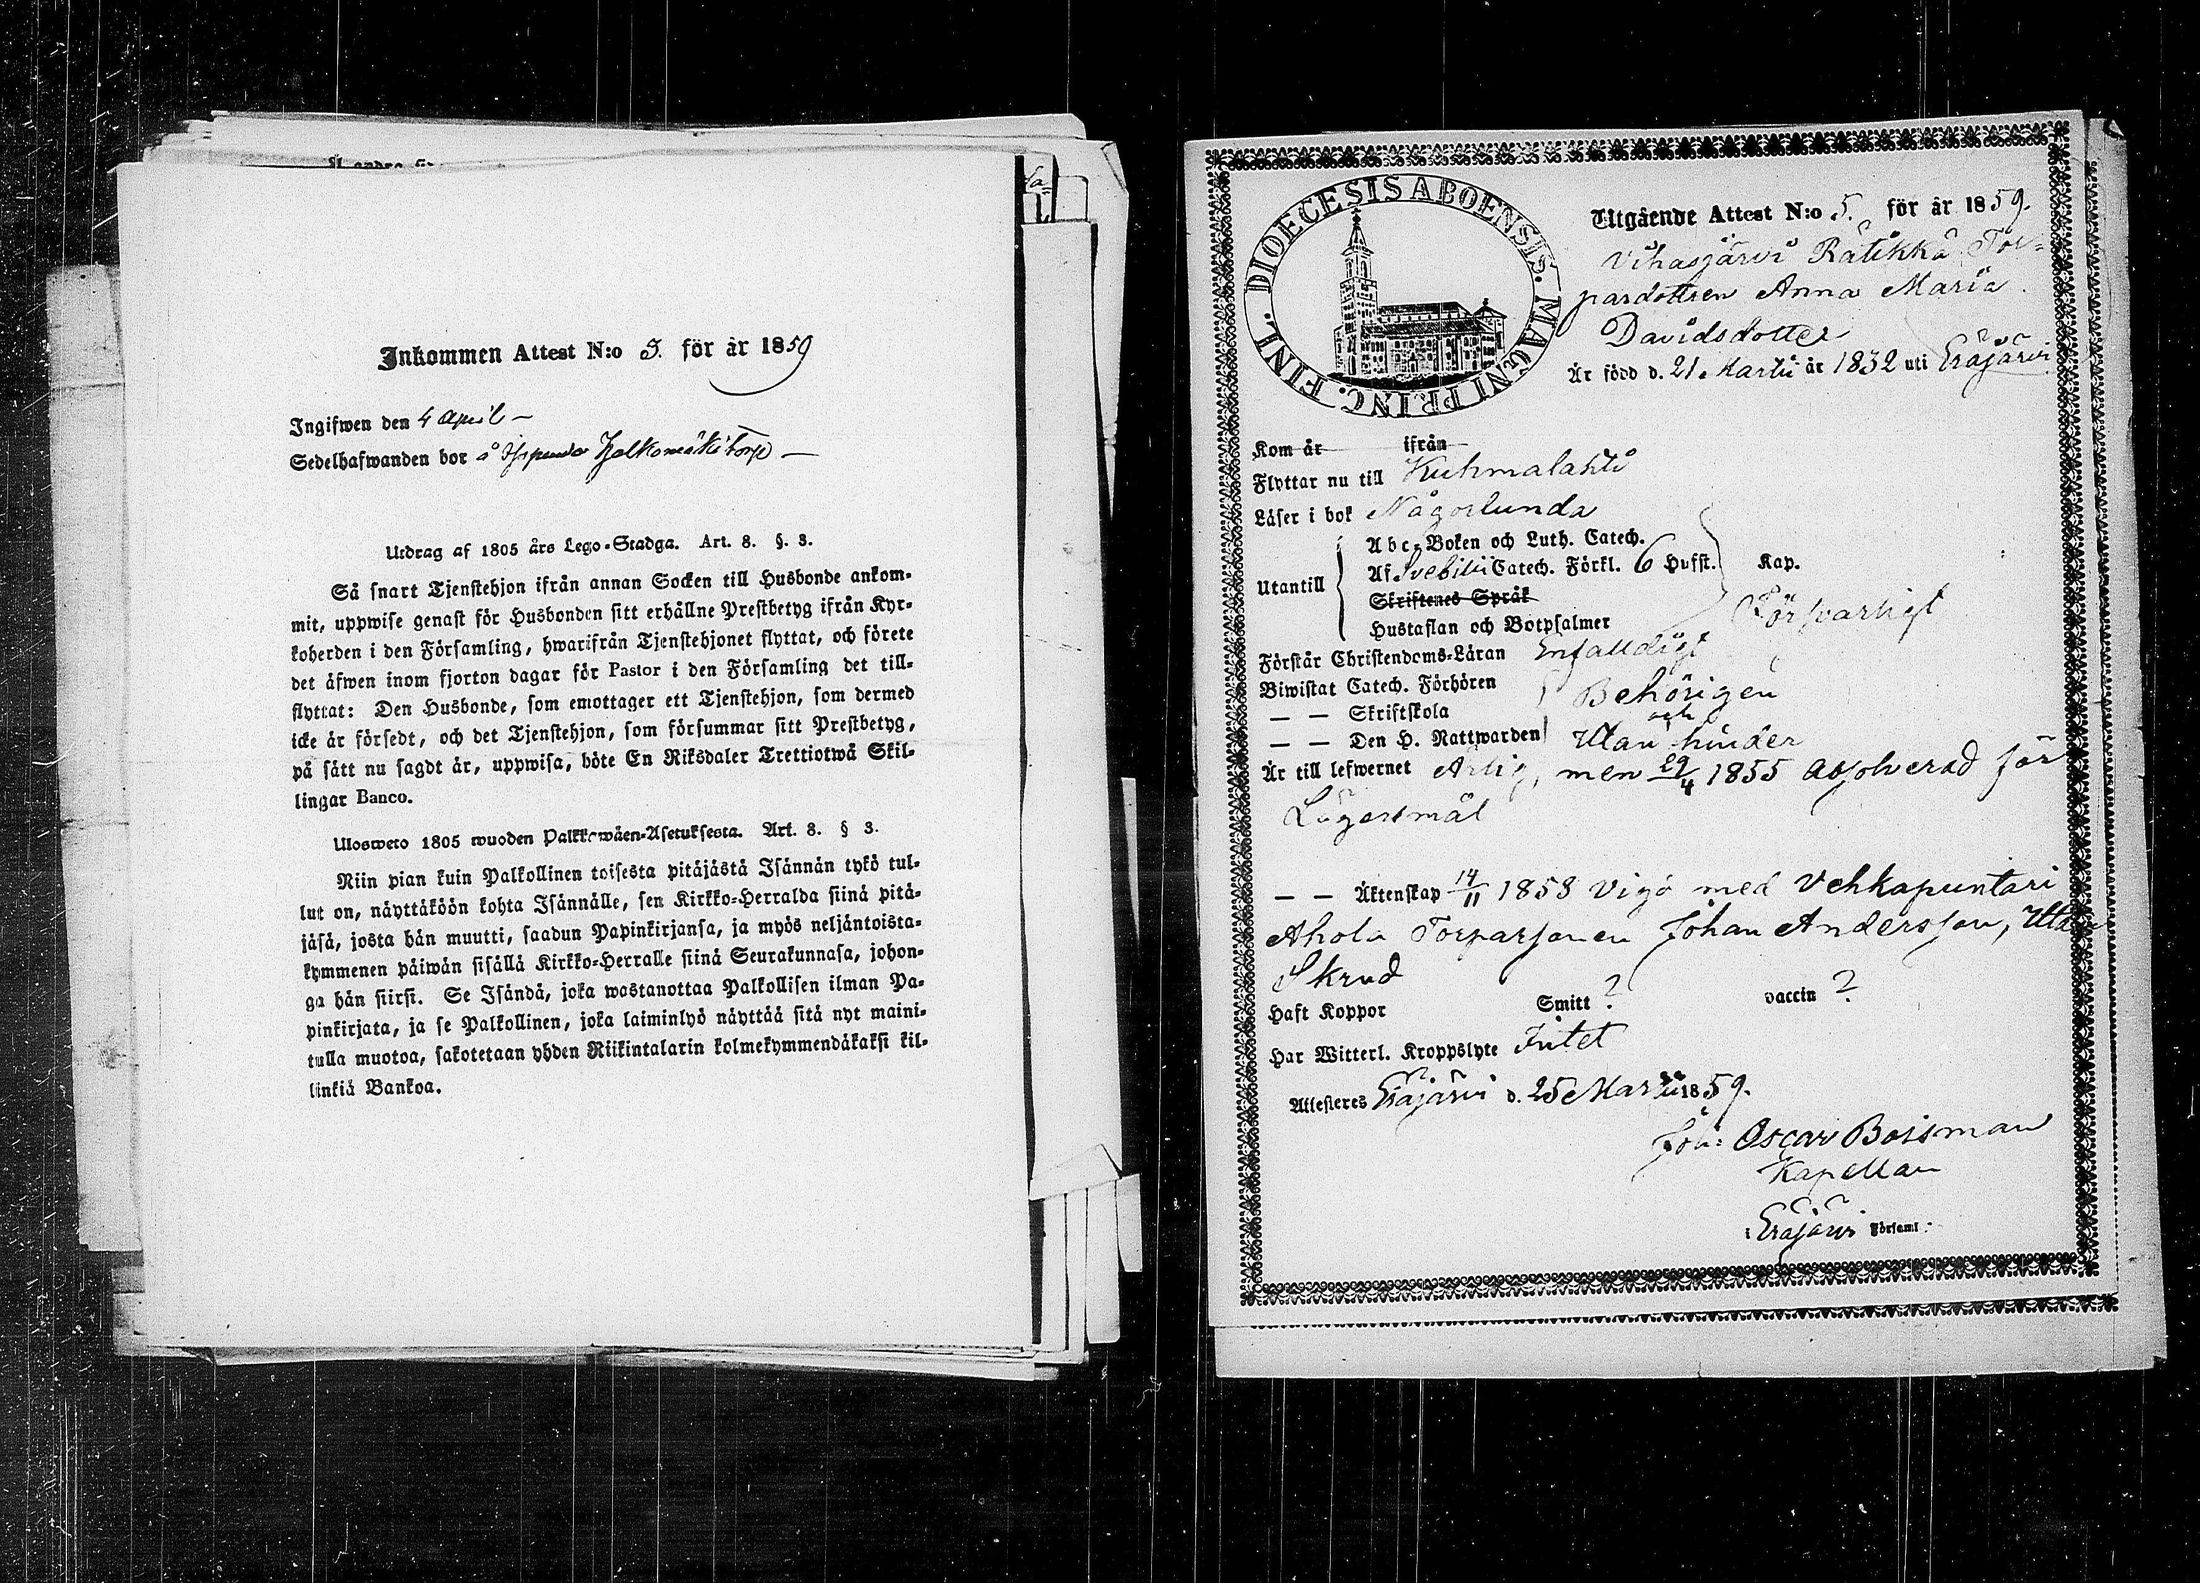 Inkommen Attest N:o 5. för år 1859
Ingifwen den 4 April –
Sedelhafwanden bor å
Utdrag af 1805 års Lego-Stadga. Art. 8. §. 3.
Så snart Tjenstehjon ifrån annan Socken till Husbonde ankom-
mit, uppwise genast för Husbonden sitt erhållne Prestbetyg ifrån Kyr-
koherden i den Församling, hwarifrån Tjenstehjonet flyttat, och förete
det äfwen inom fjorton dagar för Pastor i den Församling det till-
flyttat: Den Husbonde, som emottager ett Tjenstehjon, som dermed
icke är försedt, och det Tjenstehjon, som försummar sitt Prestbetyg,
på sätt nu sagdt är, uppwisa, böte En Riksdaler Trettiotwå Skil-
lingar Banco.
Ulosweto 1805 wuoden Palkkawäen-Asetuksesta. Art. 8. § 3.
Niin pian kuin Palkollinen toisesta pitäjästä Isännän tykö tul-
lut on, näyttäköön kohta Isännälle, sen Kirkko-Herralda siinä pitä-
jäsä, josta hän muutti, saadun Papinkirjansa, ja myös neljäntoista-
kymmenen päiwän sisällä Kirkko-Herralle siinä Seurakunnasa, johon-
ga hän siirsi. Se Isändä, joka wastanottaa Palkollisen ilman Pa-
pinkirjata, ja se Palkollinen, joka laiminlyö näyttää sitä nyt maini-
tulla muotoa, sakotetaan yhden Riikintalarin kolmekymmendäkaksi kil-
linkiä Bankoa.
DIOECESIS ABOENSIS. MAGNI PRINC. FINL.
Utgående Attest N:o 5. för år 1859.
Vihasjärvi Rätikkä Tor-
pardottren Anna Maria
Davidsdotter
Är född d. 21 Martii år 1832 uti Eräjärvi
Kom år ifrån
Flyttar nu till Kuhmalahti
Läser i bok Någorlunda
Abc-Boken och Luth. Catech.
Utantill Af Svebilii Catech. Förkl. 6 Hufst. Kap.
Skriftenes Språk
Hustaflan och Botpsalmer Försvarligt
Förstår Christendoms-Läran Enfalldigt
Biwistat Catech. Förhören Behörigen
— — Skriftskola och
— — Den H. Nattwarden Utan hinder
Är till lefwernet Ärlig, men 29/4 1855 absolverad för
Lägersmål
— — Äktenskap 14/11 1858 vigd med Vehkapuntari
Ahola Torparsonen Johan Andersson, Utan
Skrud
Haft Koppor Smitt ? vaccin ?
Har Witterl. Kroppslyte Intet
Attesteres Eräjärvi d. 25 Martii 1859.
Joh: Oscar Boisman
Kapellan
i Eräjärvi Församl: